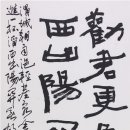 勸君更
西出陽
渭城朝雨浥輕塵客舍
酒西出陽關無故